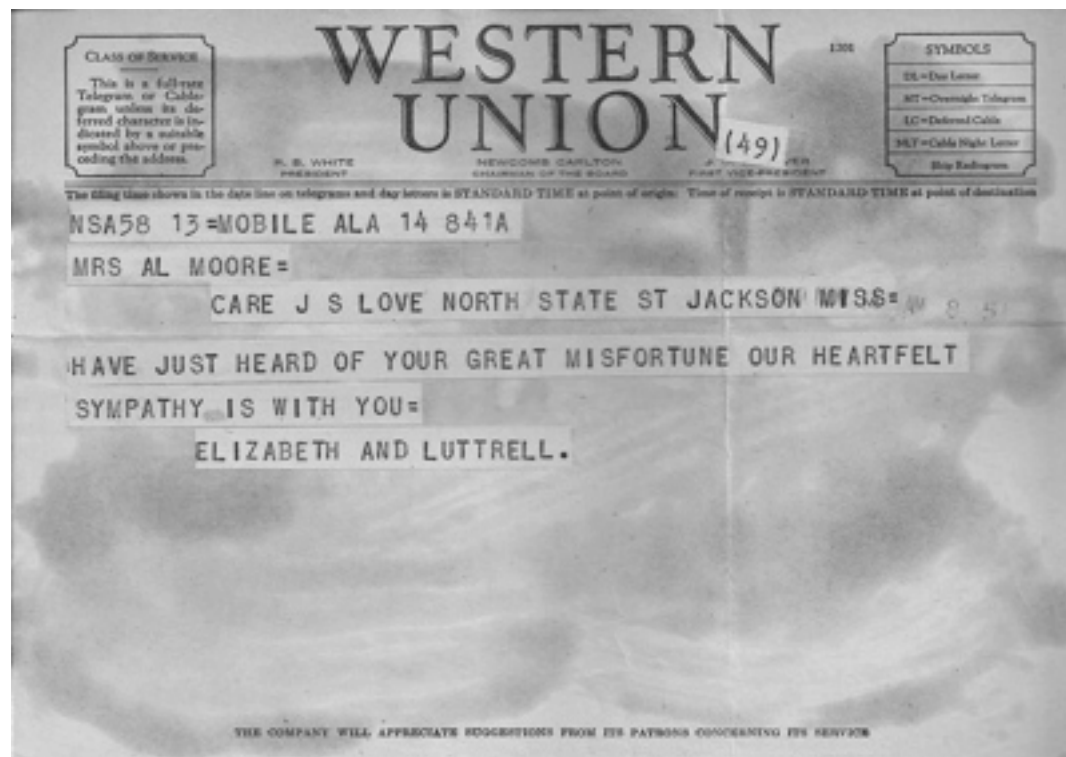 CLASS OF SERVICE
This is a full-rate
Telegram or Cable-
gram unless its de-
ferred character is in-
dicated by a suitable
symbol above or pre-
ceding the address.
WESTERN
UNION
1201
(49)
SYMBOLS
DL=Day Letter
NT=Overnight Telegram
LC=Deferred Cable
NLT=Cable Night Letter
Ship Radiogram
R. B. WHITE
PRESIDENT
NEWCOMB CARLTON
CHAIRMAN OF THE BOARD
FIRST VICE-PRESIDENT
The filing time shown in the date line on telegrams and day letters is STANDARD TIME at point of origin. Time of receipt is STANDARD TIME at point of destination
NSA58 13=MOBILE ALA 14 841A
MRS AL MOORE=
CARE J S LOVE NORTH STATE ST JACKSON MISS=
HAVE JUST HEARD OF YOUR GREAT MISFORTUNE OUR HEARTFELT
SYMPATHY IS WITH YOU=
ELIZABETH AND LUTTRELL.
THE COMPANY WILL APPRECIATE SUGGESTIONS FROM ITS PATRONS CONCERNING ITS SERVICE